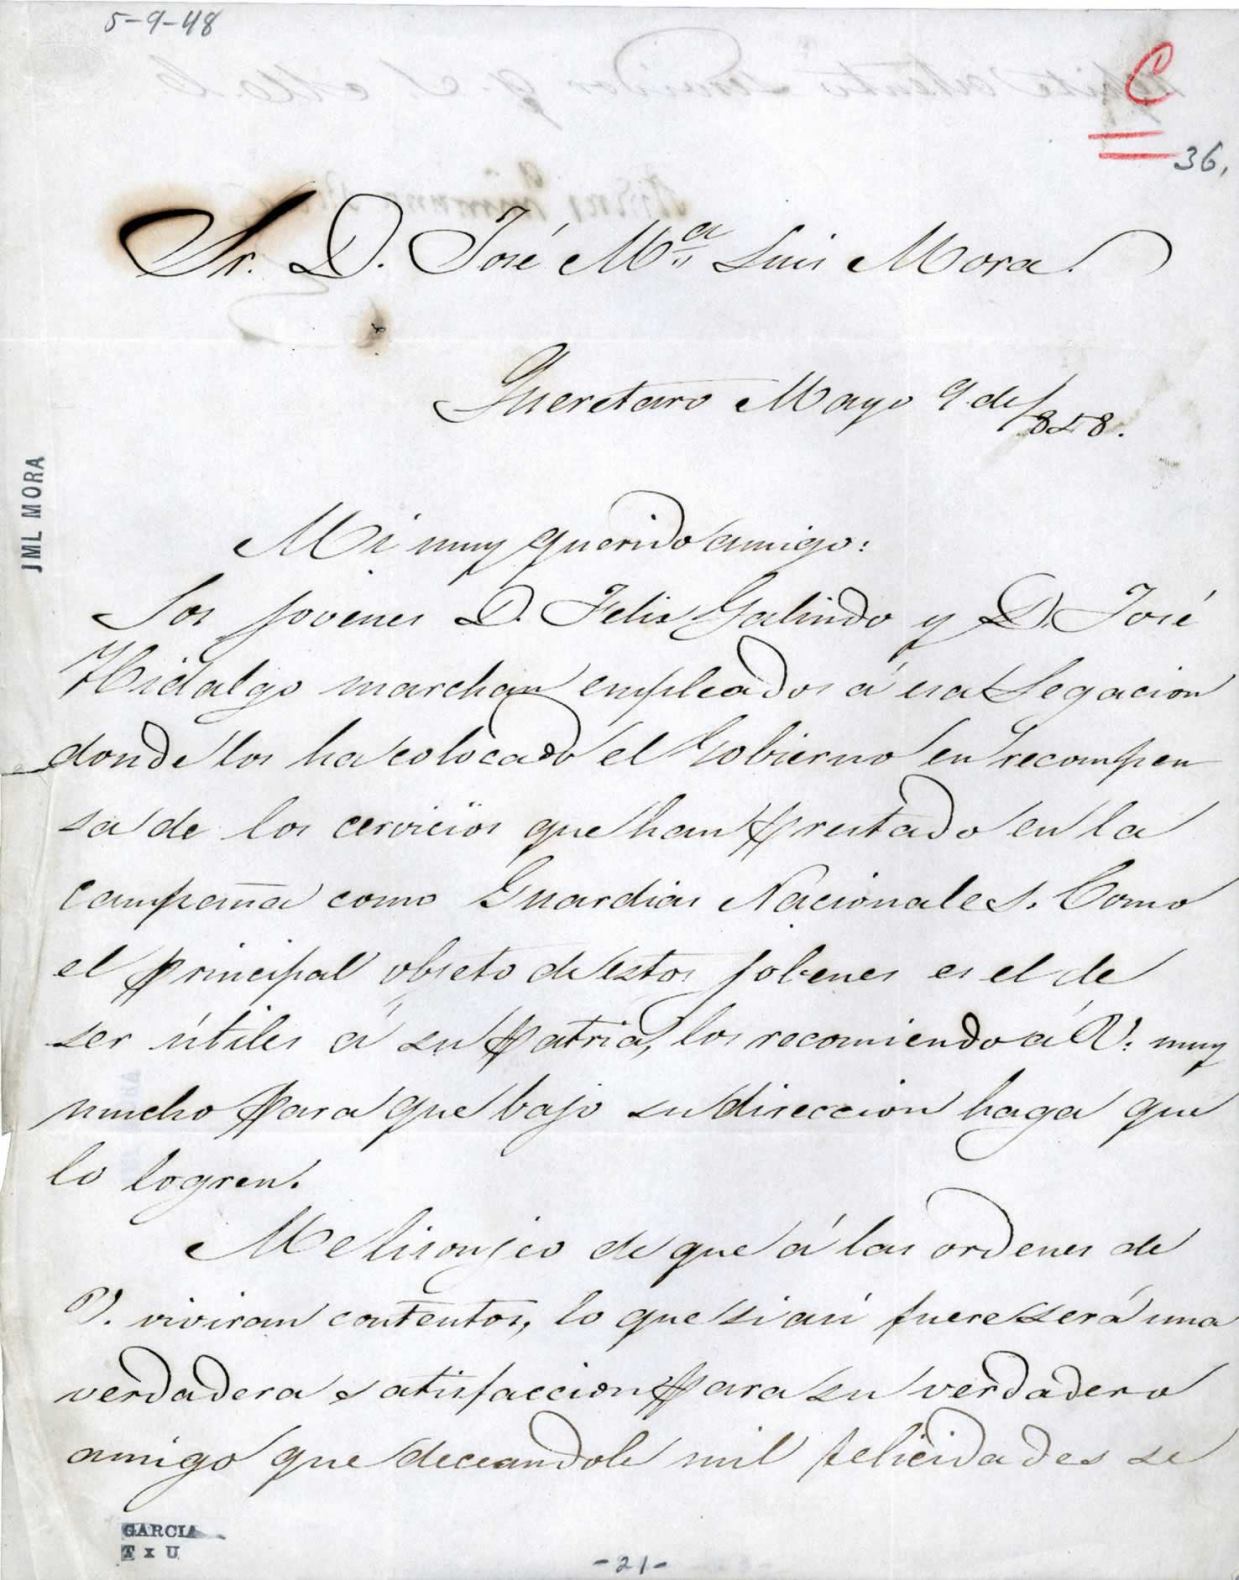 5-9-48
C
36.
Sr. D. José M.ª Luis Mora.
Queretaro Mayo 9 de 1848.
JML MORA
Mi muy querido amigo:
Los jovenes D. Felis Galindo y D. José
Hidalgo marchan empleados á esa Legacion
donde los ha colocado el Gobierno en recompen
sa de los cervicios que han prestado en la
campaña como Guardias Nacionales. Como
el principal obseto de estos jobenes es el de
ser útiles á su patria, los recomiendo á V. muy
mucho para que bajo su direccion haga que
lo logren.
Me lisonjeo de que á las ordenes de
V. viviran contentos, lo que si así fuere será una
verdadera satisfaccion para su verdadero
amigo que deceandole mil felicidades se
GARCIA
T x U
-21-